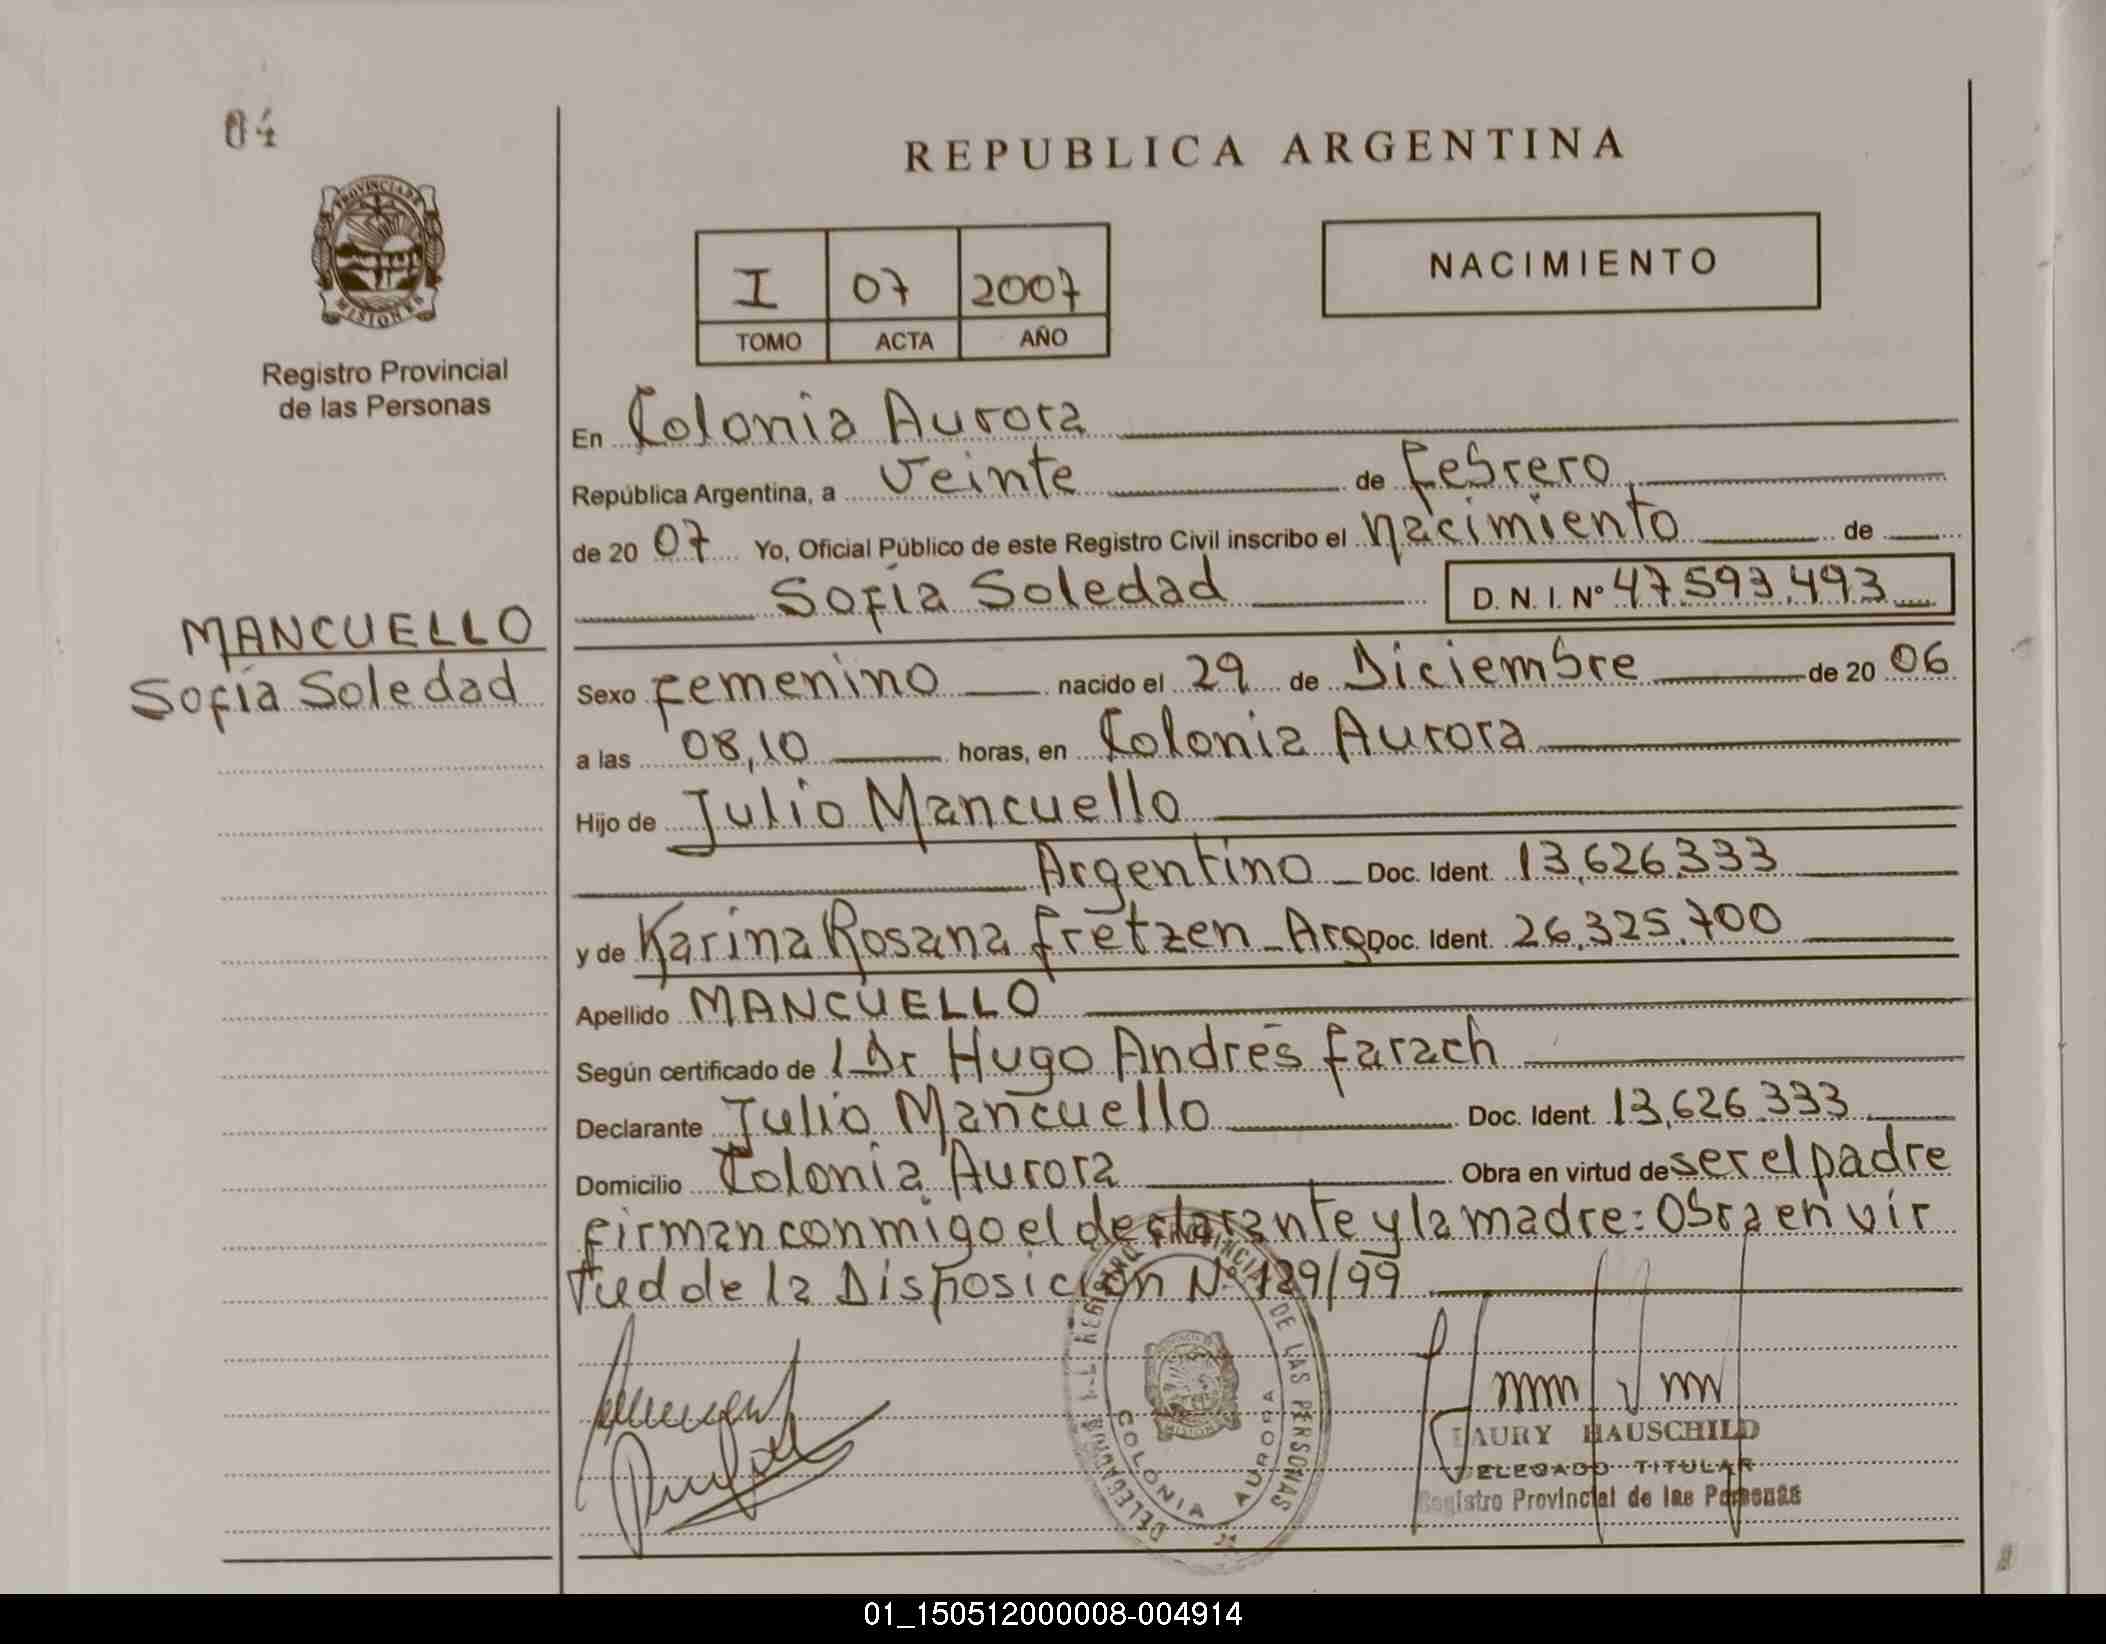 04
REPUBLICA ARGENTINA
PROVINCIA DE
MISIONES
Registro Provincial
de las Personas
I 07 2007
TOMO ACTA AÑO
NACIMIENTO
En Colonia Aurora
República Argentina, a veinte de Febrero
de 20 07 Yo, Oficial Público de este Registro Civil inscribo el nacimiento de
Sofía Soledad D.N.I. Nº 47.593.493
MANCUELLO
Sofía Soledad
Sexo Femenino nacido el 29 de Diciembre de 20 06
a las 08,10 horas, en Colonia Aurora
Hijo de Julio Mancuello
Argentino Doc. Ident. 13.626.333
y de Karina Rosana Fretzen - Arg Doc. Ident. 26.325.700
Apellido MANCUELLO
Según certificado de l Dr Hugo Andrés Farach
Declarante Julio Mancuello Doc. Ident. 13.626.333
Domicilio Colonia Aurora Obra en virtud de ser el padre
firman conmigo el declarante y la madre: Obra en vir
tud de la Disposición Nº 129/99
REGISTRO PROVINCIAL DE LAS PERSONAS
COLONIA AURORA
LAURY HAUSCHILD
DELEGADO TITULAR
Registro Provincial de las Personas
01_150512000008-004914